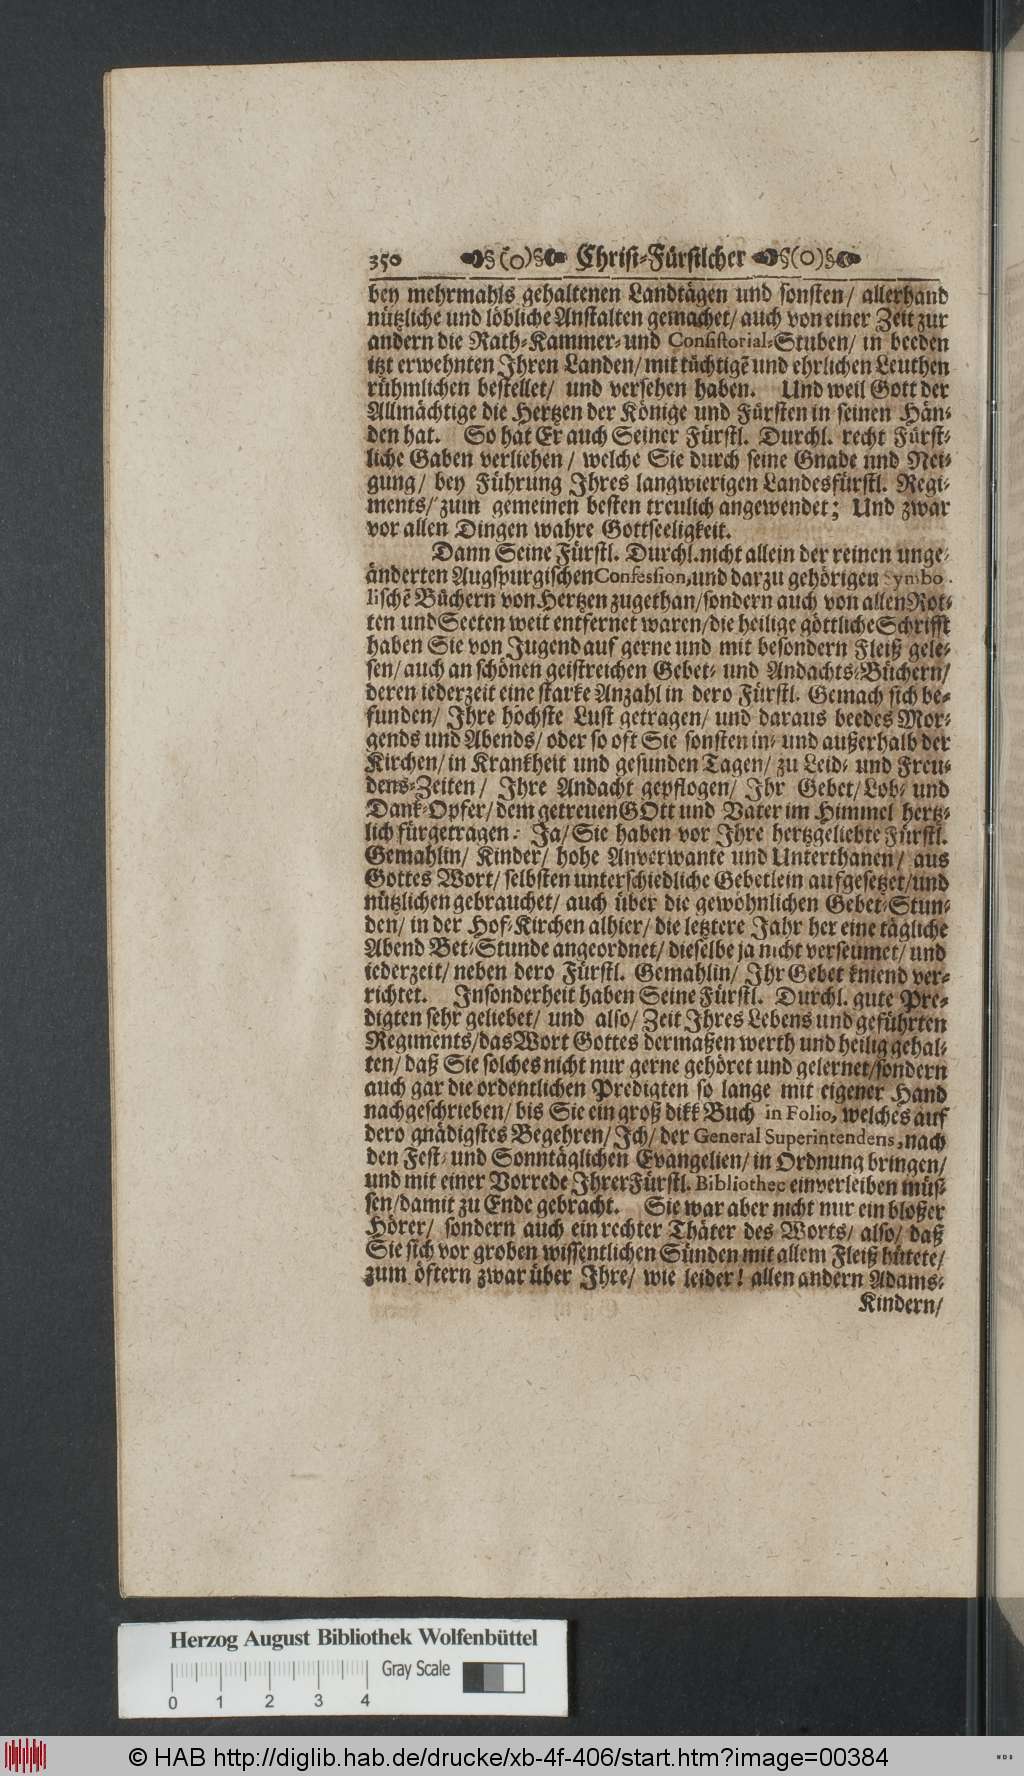 350 §(o)§ Christ-Fürstlcher §(O)§
bey mehrmahls gehaltenen Landtägen und sonsten/ allerhand
nützliche und löbliche Anstalten gemachet/ auch von einer Zeit zur
andern die Rath-Kammer- und Consistorial-Stuben/ in beeden
itzt erwehnten Ihren Landen/ mit tüchtigẽ und ehrlichen Leuthen
rühmlichen bestellet/ und versehen haben. Und weil Gott der
Allmächtige die Hertzen der Könige und Fürsten in seinen Hän-
den hat. So hat Er auch Seiner Fürstl. Durchl. recht Fürst-
liche Gaben verliehen/ welche Sie durch seine Gnade und Nei-
gung/ bey Führung Ihres langwierigen Landesfürstl. Regi-
ments/ zum gemeinen besten treulich angewendet; Und zwar
vor allen Dingen wahre Gottseeligkeit.
Dann Seine Fürstl. Durchl. nicht allein der reinen unge-
änderten Augspurgischen Confession, und darzu gehörigen Symbo-
lischẽ Büchern von Hertzen zugethan/ sondern auch von allen Rot-
ten und Secten weit entfernet waren/ die heilige göttliche Schrifft
haben Sie von Jugend auf gerne und mit besondern Fleiß gele-
sen/ auch an schönen geistreichen Gebet- und Andachts-Büchern/
deren iederzeit eine starke Anzahl in dero Fürstl. Gemach sich be-
funden/ Ihre höchste Lust getragen/ und daraus beedes Mor-
gends und Abends/ oder so oft Sie sonsten in- und außerhalb der
Kirchen/ in Krankheit und gesunden Tagen/ zu Leid- und Freu-
dens-Zeiten/ Ihre Andacht gepflogen/ Ihr Gebet/ Lob- und
Dank-Opfer/ dem getreuen GOtt und Vater im Himmel hertz-
lich fürgetragen. Ja/ Sie haben vor Ihre hertzgeliebte Fürstl.
Gemahlin/ Kinder/ hohe Anverwante und Unterthanen/ aus
Gottes Wort/ selbsten unterschiedliche Gebetlein aufgesetzet/ und
nützlichen gebrauchet/ auch über die gewöhnlichen Gebet-Stun-
den/ in der Hof-Kirchen alhier/ die letztere Jahr her eine tägliche
Abend Bet-Stunde angeordnet/ dieselbe ja nicht verseumet/ und
iederzeit/ neben dero Fürstl. Gemahlin/ Ihr Gebet kniend ver-
richtet. Insonderheit haben Seine Fürstl. Durchl. gute Pre-
digten sehr geliebet/ und also/ Zeit Ihres Lebens und geführten
Regiments/ das Wort Gottes dermaßen werth und heilig gehal-
ten/ daß Sie solches nicht nur gerne gehöret und gelernet/ sondern
auch gar die ordentlichen Predigten so lange mit eigener Hand
nachgeschrieben/ bis Sie ein groß dikk Buch in Folio, welches auf
dero gnädigstes Begehren/ Ich/ der General Superintendens, nach
den Fest- und Sonntäglichen Evangelien/ in Ordnung bringen/
und mit einer Vorrede Ihrer Fürstl. Bibliothec einverleiben müs-
sen/ damit zu Ende gebracht. Sie war aber nicht nur ein bloßer
Hörer/ sondern auch ein rechter Thäter des Worts/ also/ daß
Sie sich vor groben wissentlichen Sünden mit allem Fleiß hütete/
zum öftern zwar über Ihre/ wie leider! allen andern Adams-
Kindern/
Herzog August Bibliothek Wolfenbüttel
Gray Scale
0 1 2 3 4
© HAB http://diglib.hab.de/drucke/xb-4f-406/start.htm?image=00384